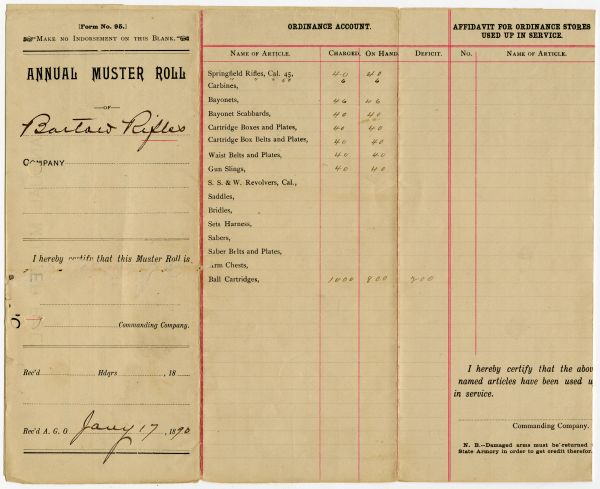 [Form No. 95.]
"Make no Indorsement on this Blank."
ANNUAL MUSTER ROLL
—OF—
Bartow Rifles
COMPANY
I hereby certify that this Muster Roll is
Commanding Company.
Rec'd Hdqrs , 18
Rec'd A. G. O. Jany 17, 1890
ORDINANCE ACCOUNT.
Name of Article. Charged. On Hand. Deficit.
Springfield Rifles, Cal. 45, 40 40
" " " 6 6
Carbines,
Bayonets, 46 46
Bayonet Scabbards, 40 40
Cartridge Boxes and Plates, 40 40
Cartridge Box Belts and Plates, 40 40
Waist Belts and Plates, 40 40
Gun Slings, 40 40
S. S. & W. Revolvers, Cal.,
Saddles,
Bridles,
Sets Harness,
Sabers,
Saber Belts and Plates,
Arm Chests,
Ball Cartridges, 1000 800 200
AFFIDAVIT FOR ORDINANCE STORES
USED UP IN SERVICE.
No. Name of Article.
I hereby certify that the abov
named articles have been used u
in service.
Commanding Company.
N. B.—Damaged arms must be returned
State Armory in order to get credit therefor.